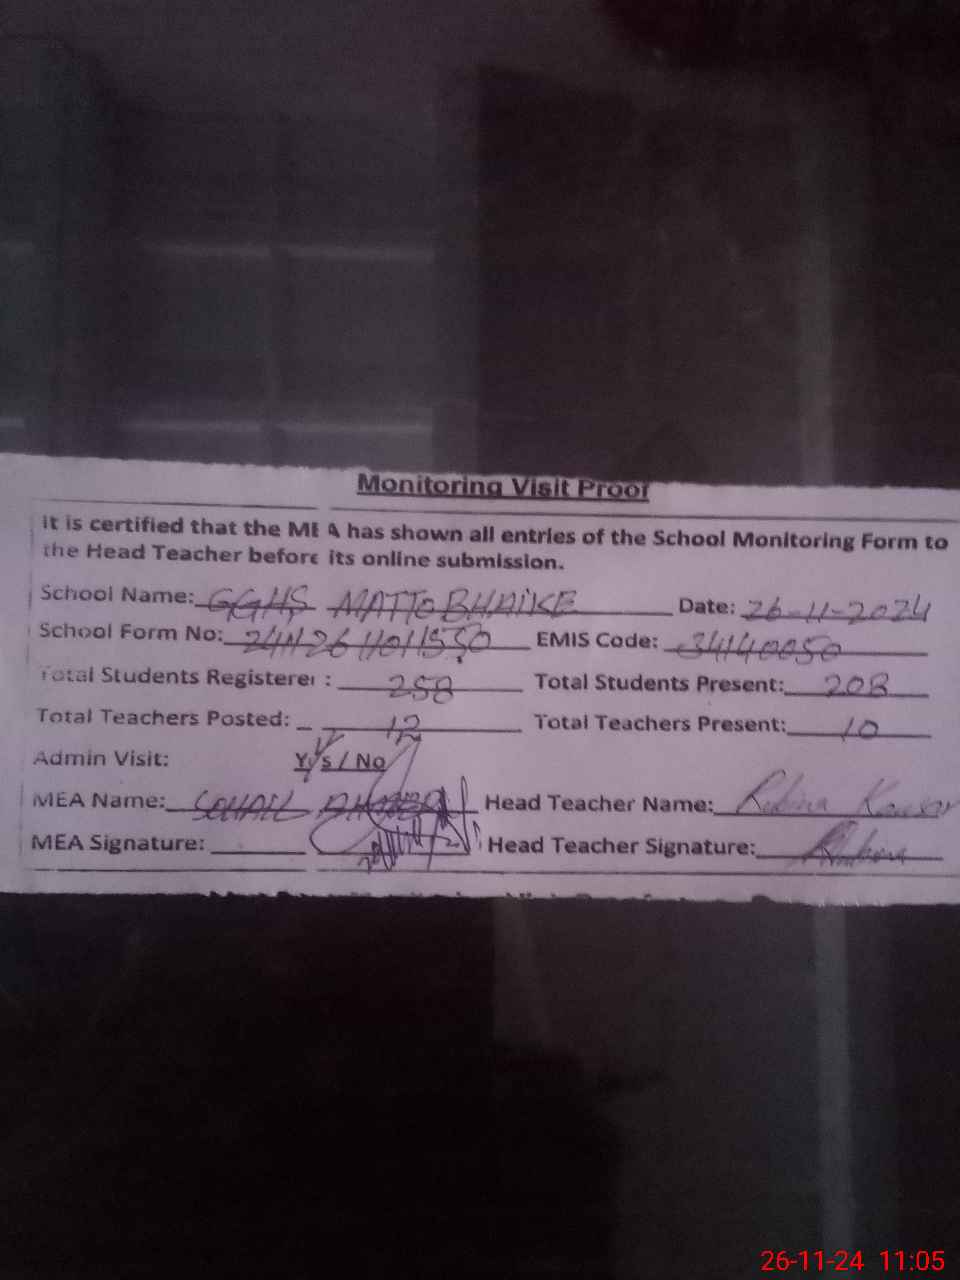 Monitoring Visit Proof
it is certified that the MEA has shown all entries of the School Monitoring Form to
the Head Teacher before its online submission.
School Name: GGHS MATTO BHAIKE Date: 26-11-2024
School Form No: EMIS Code: 34140050
Total Students Registered: 258 Total Students Present: 208
Total Teachers Posted: 12 Total Teachers Present: 10
Admin Visit: Yes / No
MEA Name: SOHAIL Head Teacher Name: Rubina Kousar
MEA Signature: Head Teacher Signature:
26-11-24 11:05